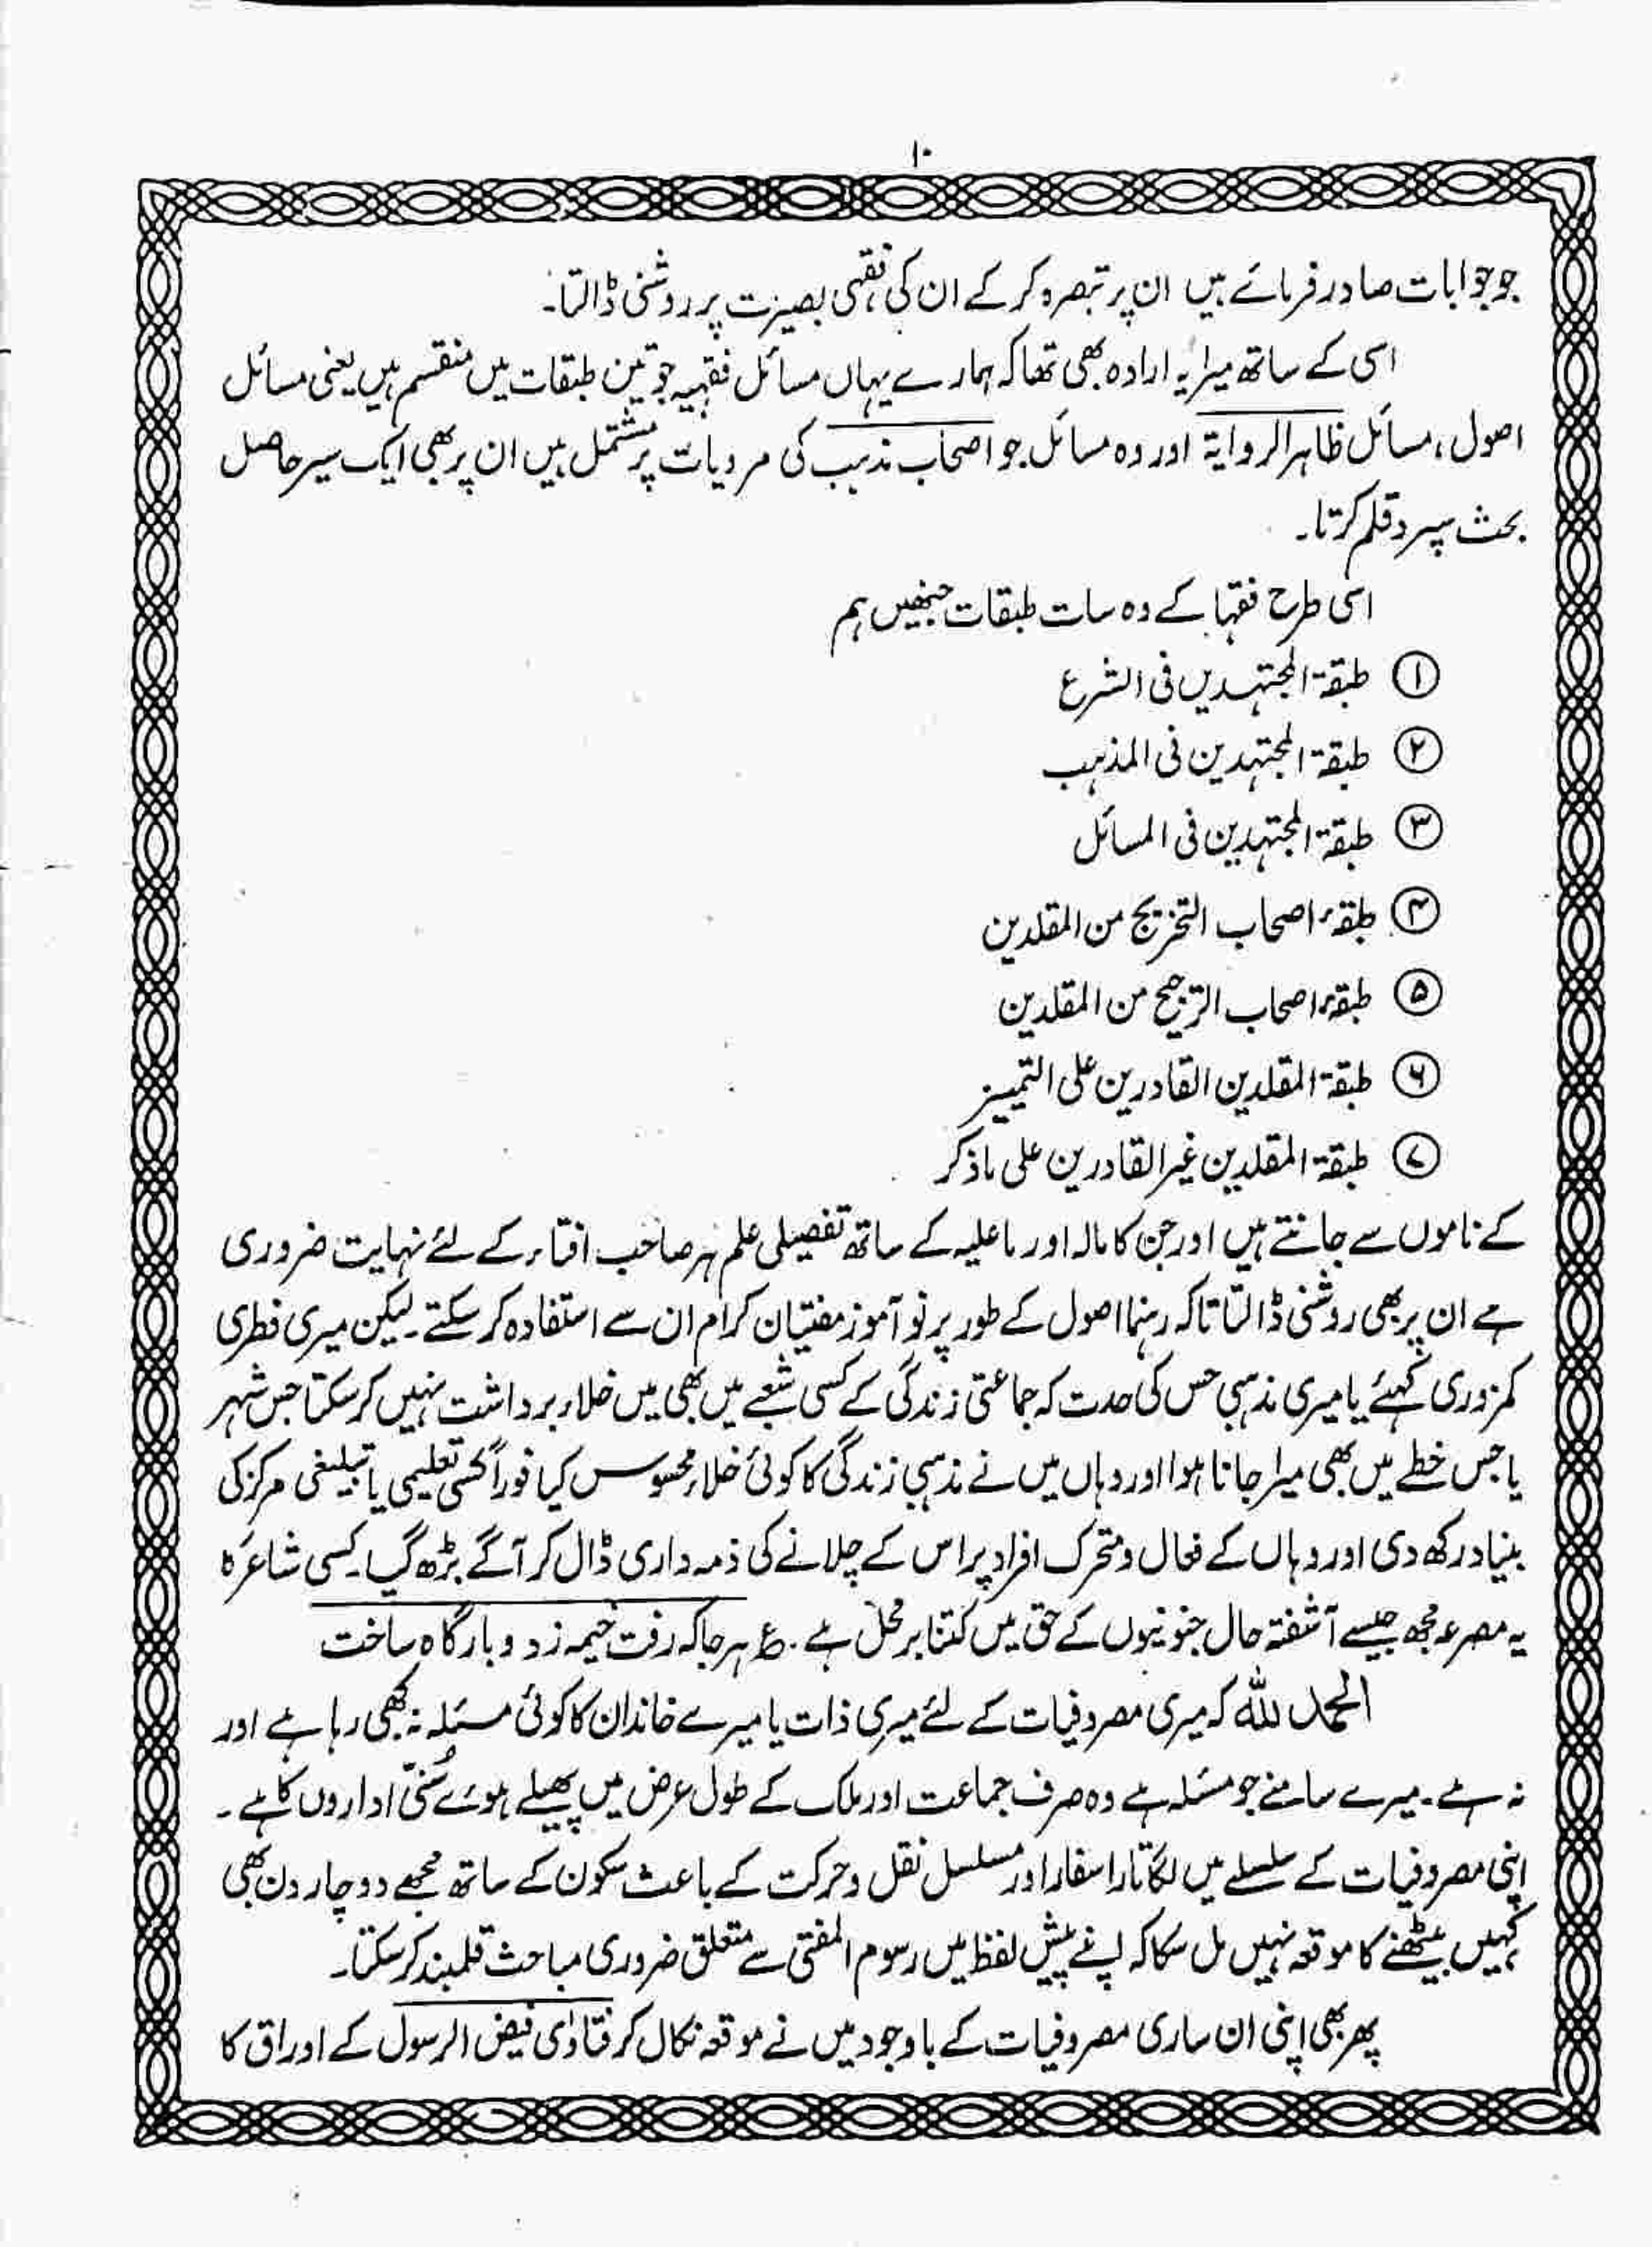 ۱۰
جو جوابات صادر فرمائے ہیں ان پر تبصرہ کرکے ان کی فقہی بصیرت پر روشنی ڈالتا۔
اسی کے ساتھ میرا یہ ارادہ بھی تھا کہ ہمارے یہاں مسائل فقہیہ جو تین طبقات میں منقسم ہیں یعنی مسائل
اصول، مسائل ظاہر الروایۃ اور وہ مسائل جو اصحاب مذہب کی مرویات پر مشتمل ہیں ان پر بھی ایک سیر حاصل
بحث سپرد قلم کرتا۔
اسی طرح فقہا کے وہ سات طبقات جنھیں ہم
① طبقۃ المجتہدین فی الشرع
② طبقۃ المجتہدین فی المذہب
③ طبقۃ المجتہدین فی المسائل
④ طبقۂ اصحاب التخریج من المقلدین
⑤ طبقۂ اصحاب الترجیح من المقلدین
⑥ طبقۃ المقلدین القادرین علی التمییز
⑦ طبقۃ المقلدین غیر القادرین علی ماذکر
کے ناموں سے جانتے ہیں اور جن کا مالہ اور ماعلیہ کے ساتھ تفصیلی علم ہر صاحب افتاء کے لئے نہایت ضروری
ہے ان پر بھی روشنی ڈالتا تاکہ رہنما اصول کے طور پر نو آموز مفتیان کرام ان سے استفادہ کر سکتے۔ لیکن میری فطری
کمزوری کہئے یا میری مذہبی حس کی حدت کہ جماعتی زندگی کے کسی شعبے میں بھی میں خلاء برداشت نہیں کر سکتا جس شہر
یا جس خطے میں بھی میرا جانا ہوا اور وہاں میں نے مذہبی زندگی کا کوئی خلاء محسوس کیا فوراً کسی تعلیمی یا تبلیغی مرکز کی
بنیاد رکھ دی اور وہاں کے فعال و متحرک افراد پر اس کے چلانے کی ذمہ داری ڈال کر آگے بڑھ گیا۔ کسی شاعر کا
یہ مصرعہ مجھ جیسے آشفتہ حال جنونیوں کے حق میں کتنا برمحل ہے۔ ع ہر جا کہ رفت خیمہ زد و بارگاہ ساخت
الحمد للہ کہ میری مصروفیات کے لئے میری ذات یا میرے خاندان کا کوئی مسئلہ نہ کبھی رہا ہے اور
نہ ہے۔ میرے سامنے جو مسئلہ ہے وہ صرف جماعت اور ملک کے طول عرض میں پھیلے ہوئے سُنّی اداروں کا ہے۔
اپنی مصروفیات کے سلسلے میں لگاتار اسفار اور مسلسل نقل و حرکت کے باعث سکون کے ساتھ مجھے دو چار دن بھی
کہیں بیٹھنے کا موقعہ نہیں مل سکا کہ اپنے پیش لفظ میں رسوم المفتی سے متعلق ضروری مباحث قلمبند کر سکتا۔
پھر بھی اپنی ان ساری مصروفیات کے باوجود میں نے موقعہ نکال کر فتاویٰ فیض الرسول کے اوراق کا